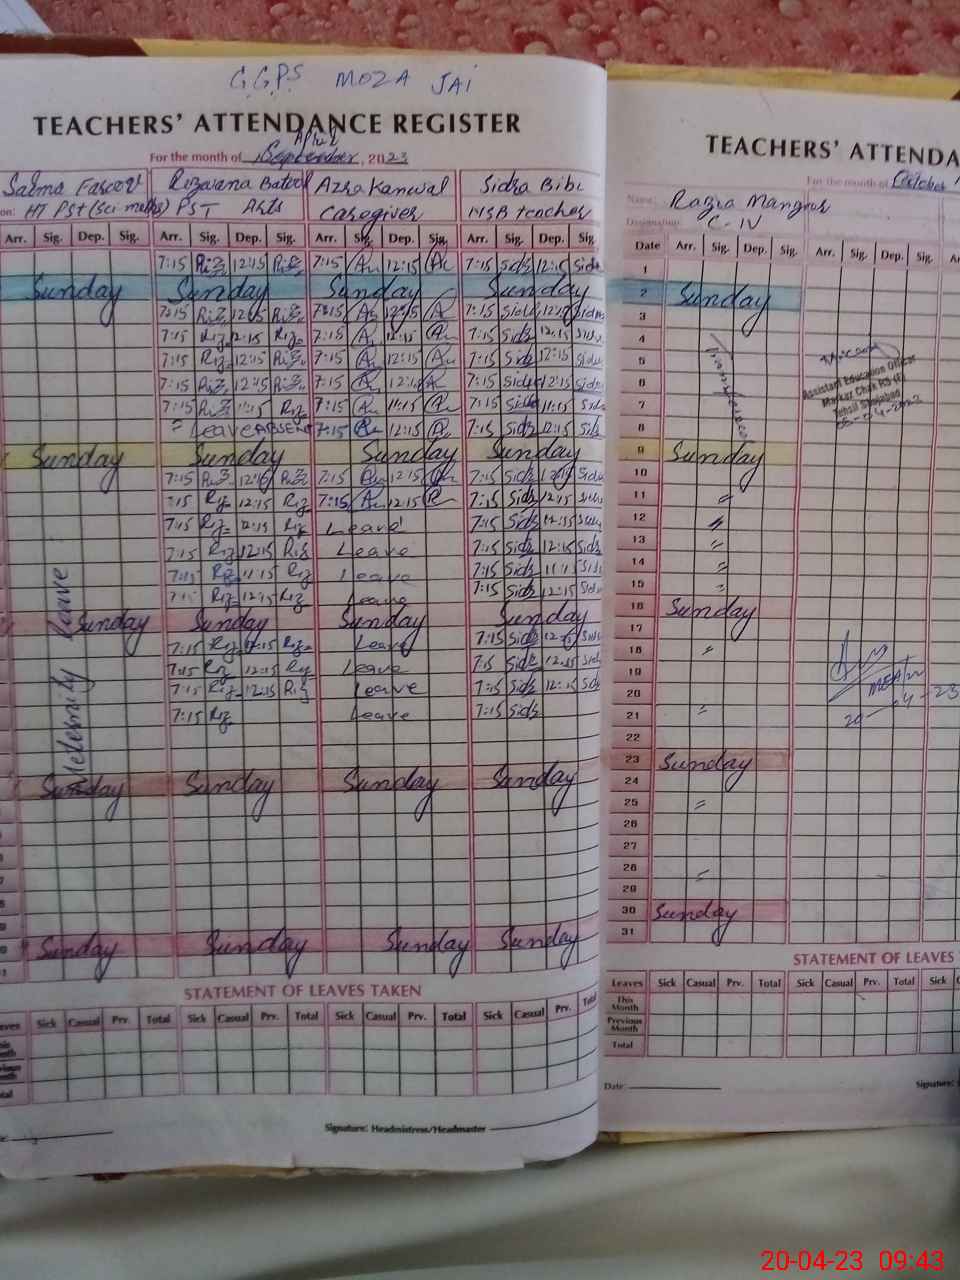 G.G.P.S MOZA JAI
TEACHERS' ATTENDANCE REGISTER
April
For the month of September, 2023
Salma Rizwana Batool Azra Kanwal Sidra Bibi
HT PST (Sci-maths) PST Arts Caregiver teacher
Arr. Sig. Dep. Sig. Arr. Sig. Dep. Sig. Arr. Sig. Dep. Sig. Arr. Sig. Dep. Sig.
7:15 Riz 12:15 Riz 7:15 12:15 7:15 Sidr 12:15 Sidr
Sunday Sunday Sunday Sunday
7:15 Riz 12:15 Riz 7:15 12:15 7:15 Sidr 12:15 Sidr
7:15 Riz 12:15 Riz 7:15 12:15 7:15 Sidr 12:15 Sidr
7:15 Riz 12:15 Riz 7:15 12:15 7:15 Sidr 12:15 Sidr
7:15 Riz 12:15 Riz 7:15 12:15 7:15 Sidr 12:15 Sidr
7:15 Riz 11:15 Riz 7:15 11:15 7:15 Sidr 11:15 Sidr
= Leave ABSENT 7:15 12:15 7:15 Sidr 12:15 Sidr
Sunday Sunday Sunday Sunday
7:15 Riz 12:15 Riz 7:15 12:15 7:15 Sidr 12:15 Sidr
7:15 Riz 12:15 Riz 7:15 12:15 7:15 Sidr 12:15 Sidr
7:15 Riz 12:15 Riz Leave 7:15 Sidr 12:15 Sidr
7:15 Riz 12:15 Riz Leave 7:15 Sidr 12:15 Sidr
7:15 Riz 11:15 Riz Leave 7:15 Sidr 11:15 Sidr
7:15 Riz 12:15 Riz Leave 7:15 Sidr 12:15 Sidr
Sunday Sunday Sunday Sunday
7:15 Riz 11:15 Riz Leave 7:15 Sidr 12:15 Sidr
7:15 Riz 12:15 Riz Leave 7:15 Sidr 12:15 Sidr
7:15 Riz 12:15 Riz Leave 7:15 Sidr 12:15 Sidr
7:15 Riz Leave 7:15 Sidr
Meternity Leave
Sunday Sunday Sunday Sunday
Sunday Sunday Sunday Sunday
STATEMENT OF LEAVES TAKEN
Sick Casual Prv. Total Sick Casual Prv. Total Sick Casual Prv. Total Sick Casual Prv. Total
Signature: Headmistress/Headmaster
TEACHERS' ATTENDA
For the month of October
Name: Razia
Designation: C-IV
Date Arr. Sig. Dep. Sig. Arr. Sig. Dep.
1
2 Sunday
3
4
5
6
7
8
9 Sunday
10
11 =
12 =
13 =
14 =
15 =
16 Sunday
17
18 =
19
20
21 =
22
23 Sunday
24
25 =
26
27
28 =
29
30 Sunday
31
Assistant Education Officer
Markaz Chak RS (F)
Tehsil
MEA
20-04-23
STATEMENT OF LEAVES
Leaves Sick Casual Prv. Total Sick Casual Prv. Total
This Month
Previous Month
Total
Date:
Signature:
20-04-23 09:43